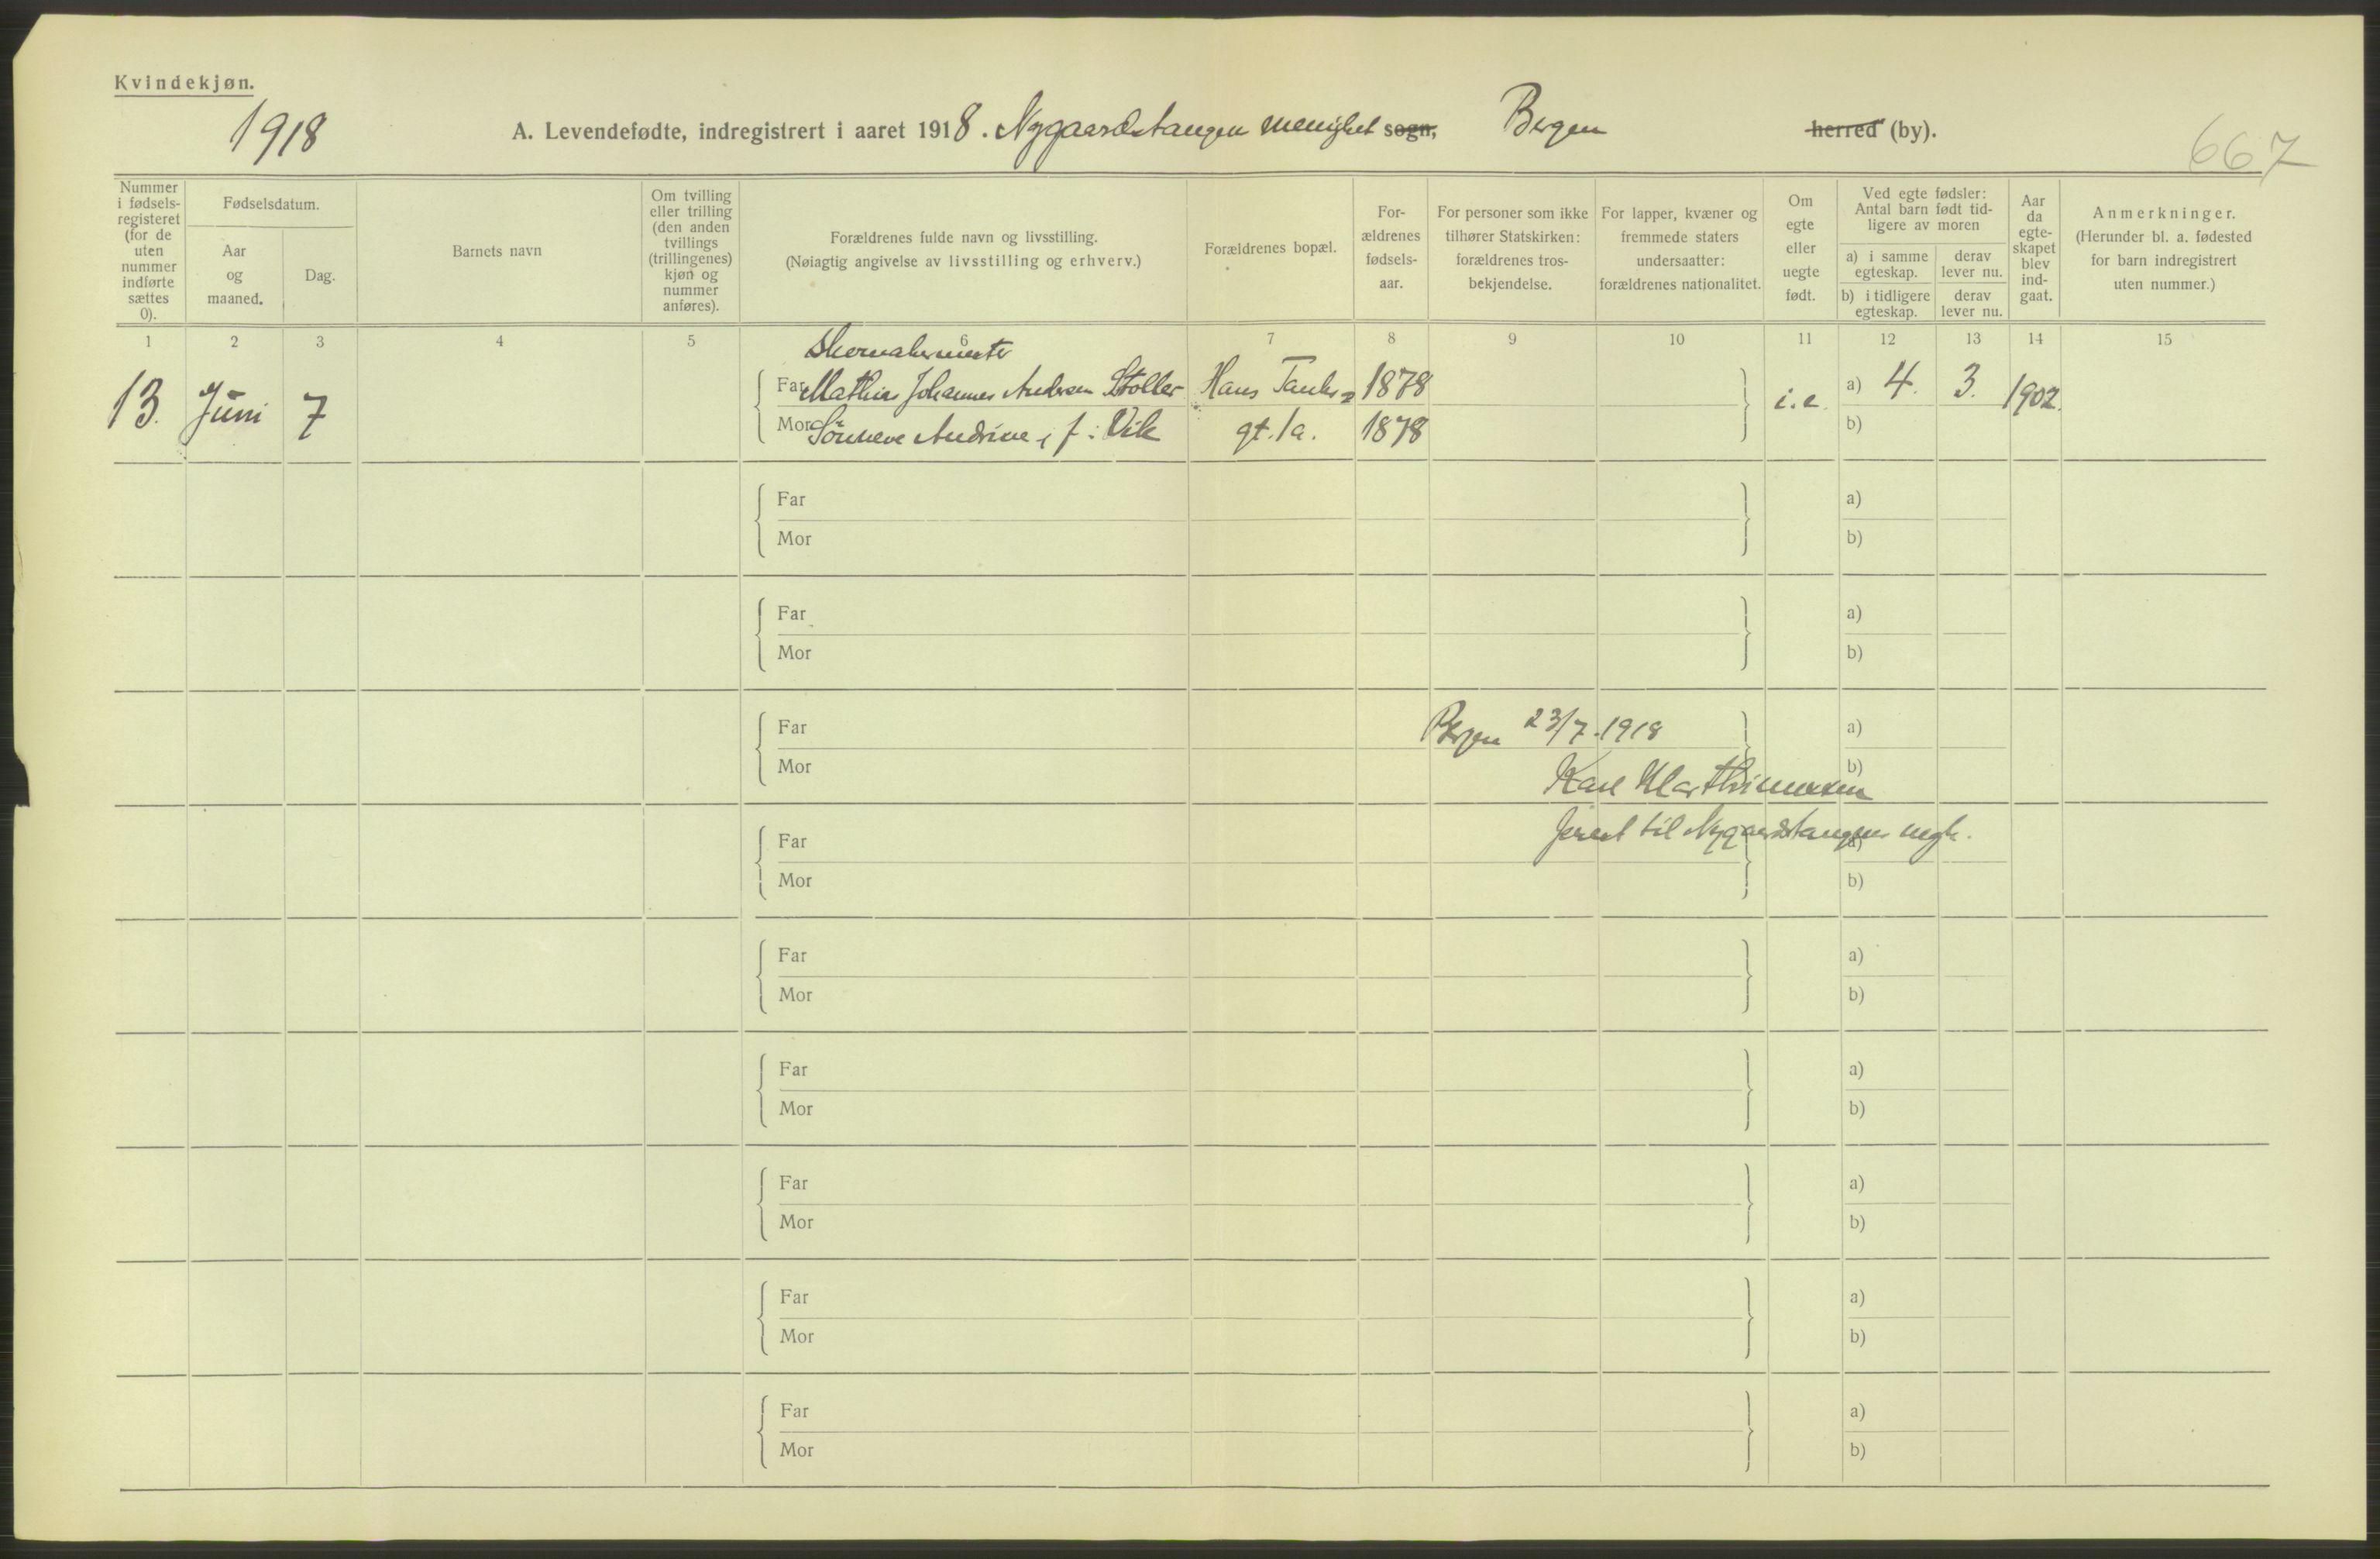 Kvindekjøn.
1918
A. Levendefødte, indregistrert i aaret 1918. Nygaardstangen menighet sogn, Bergen herred (by).
667
Nummer i fødsels-registeret (for de uten nummer indførte sættes 0).
Fødselsdatum.
Aar og maaned.
Dag.
Barnets navn
Om tvilling eller trilling (den anden tvillings (trillingenes) kjøn og nummer anføres).
Forældrenes fulde navn og livsstilling.
(Nøiagtig angivelse av livsstilling og erhverv.)
Forældrenes bopæl.
For-ældrenes fødsels-aar.
For personer som ikke tilhører Statskirken: forældrenes tros-bekjendelse.
For lapper, kvæner og fremmede staters undersaatter: forældrenes nationalitet.
Om egte eller uegte født.
Ved egte fødsler: Antal barn født tid-ligere av moren
a) i samme egteskap.
derav lever nu.
b) i tidligere egteskap.
derav lever nu.
Aar da egte-skapet blev ind-gaat.
Anmerkninger.
(Herunder bl. a. fødested for barn indregistrert uten nummer.)
1 2 3 4 5 6 7 8 9 10 11 12 13 14 15
Skomakermester
13. Juni 7 Far Mathias Johannes Andersen Stoller Hans Tanks= 1878 i.e. a) 4. 3. 1902.
Mor Sönneve Andrine, f: Vik gt. 1a. 1878 b)
Far a)
Mor b)
Far a)
Mor b)
Far Bergen 23/7. 1918 a)
Mor b)
Karl Marthinussen
prest til Nygaardstangen mgh.
Far a)
Mor b)
Far a)
Mor b)
Far a)
Mor b)
Far a)
Mor b)
Far a)
Mor b)
Far a)
Mor b)